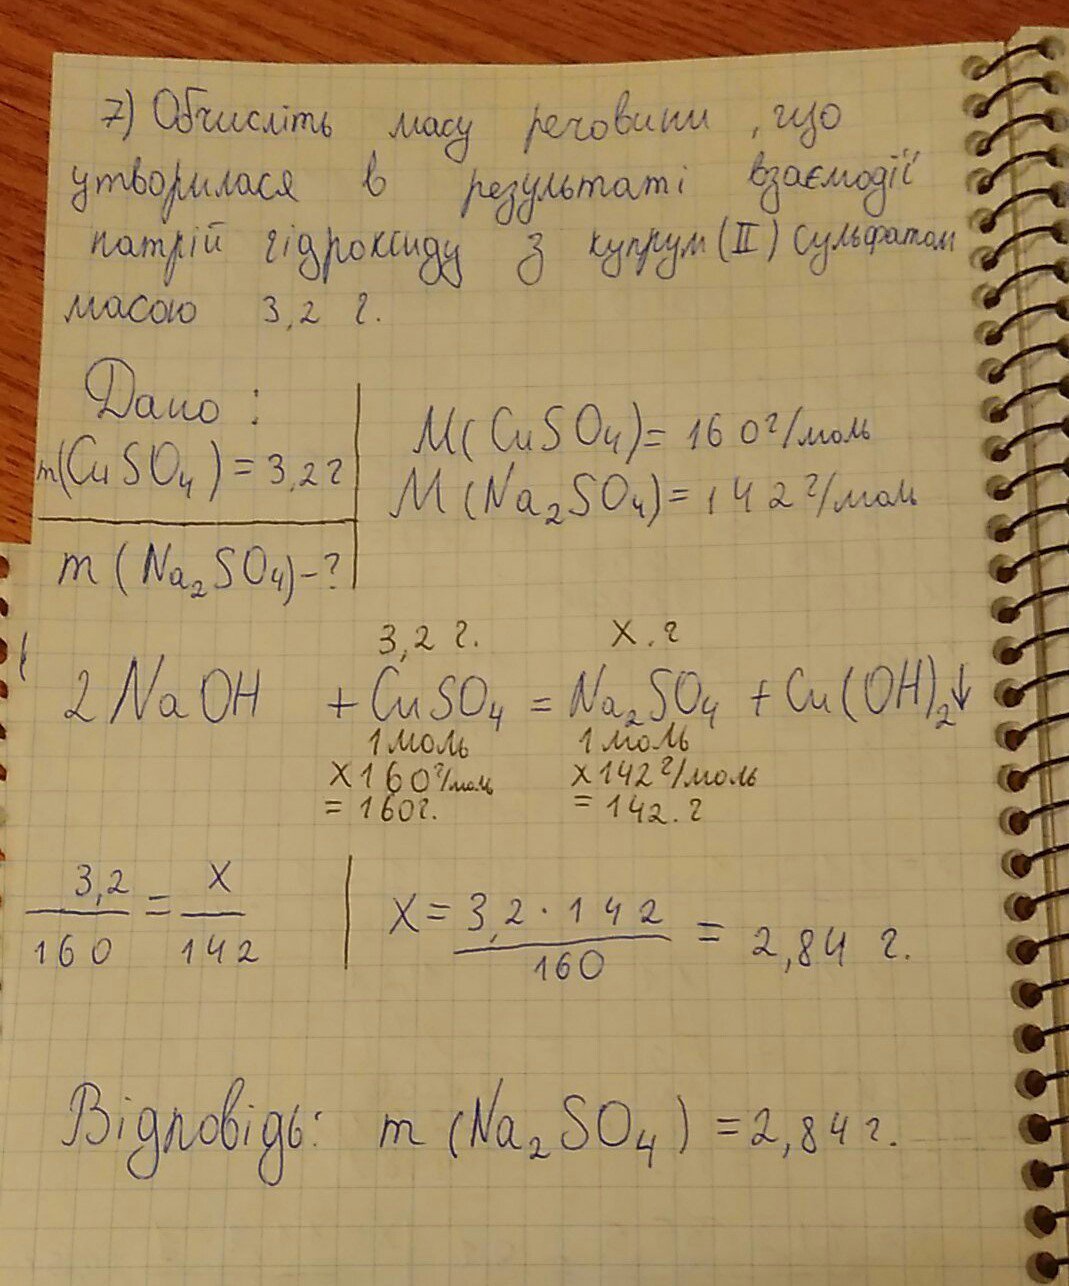 7) Обчисліть масу речовини, що
утворилася в результаті взаємодії
натрій гідроксиду з купрум (II) сульфатом
масою 3,2 г.
Дано:
m(CuSO₄) = 3,2 г
m (Na₂SO₄) – ?
M(CuSO₄) = 160 г/моль
M(Na₂SO₄) = 142 г/моль
3,2 г. x. г
2 NaOH + CuSO₄ = Na₂SO₄ + Cu(OH)₂↓
1 моль 1 моль
x 160 г/моль x 142 г/моль
= 160 г. = 142. г
3,2/160 = x/142
x = 3,2 · 142/160 = 2,84 г.
Відповідь: m (Na₂SO₄) = 2,84 г.